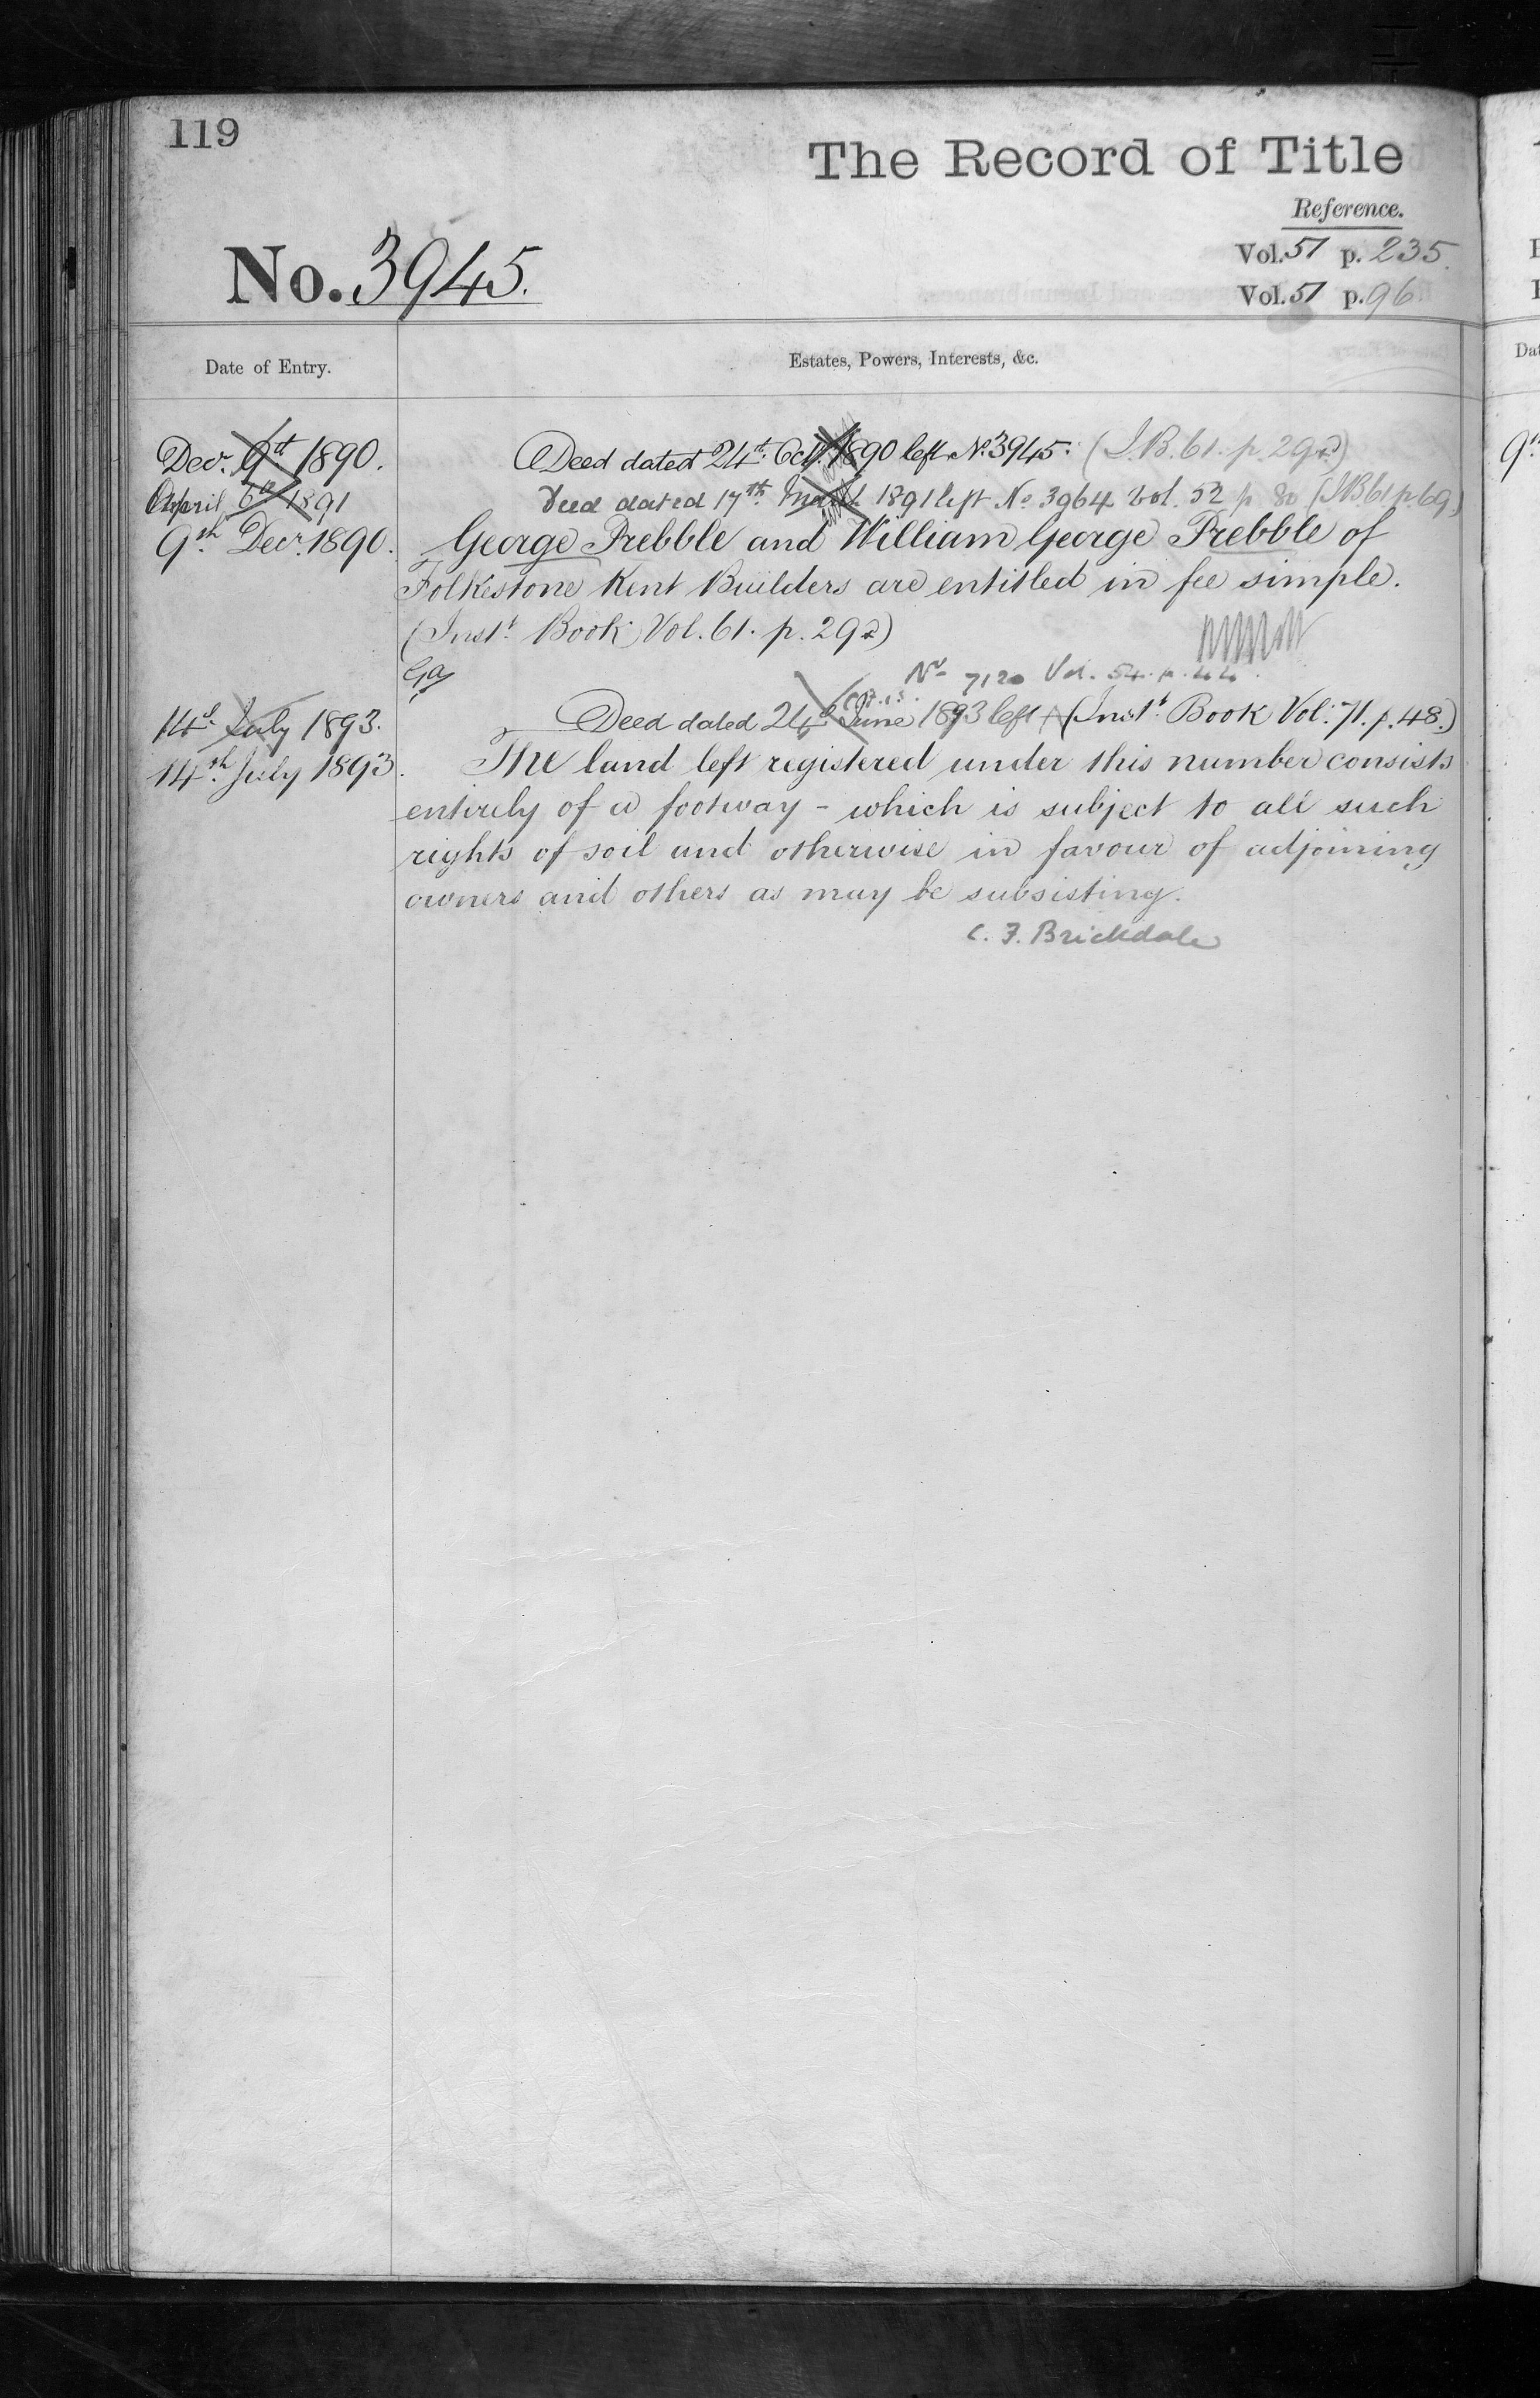 119
The Record of Title
Reference.
No. 3945.
Vol. 51 p. 235.
Vol. 51 p. 96
Date of Entry.
Estates, Powers, Interests, &c.
Decr. 9th 1890. Deed dated 24th Octr. 1890 left No. 3945. (I.B. 61. p. 292)
April 6th 1891 Deed dated 17th March 1891 left No 3964 Vol. 52 p 80 (IB 61 p. 69)
9th Decr. 1890. George Prebble and William George Prebble of
Folkestone Kent Builders are entitled in fee simple.
(Inst. Book Vol. 61. p. 292)
No 7120 Vol. 54. p. 44.
14th July 1893. Deed dated 24th June 1893 left (Inst. Book Vol. 71. p. 48.)
14th July 1893. The land left registered under this number consists
entirely of a footway - which is subject to all such
rights of soil and otherwise in favour of adjoining
owners and others as may be subsisting.
C. F. Brickdale